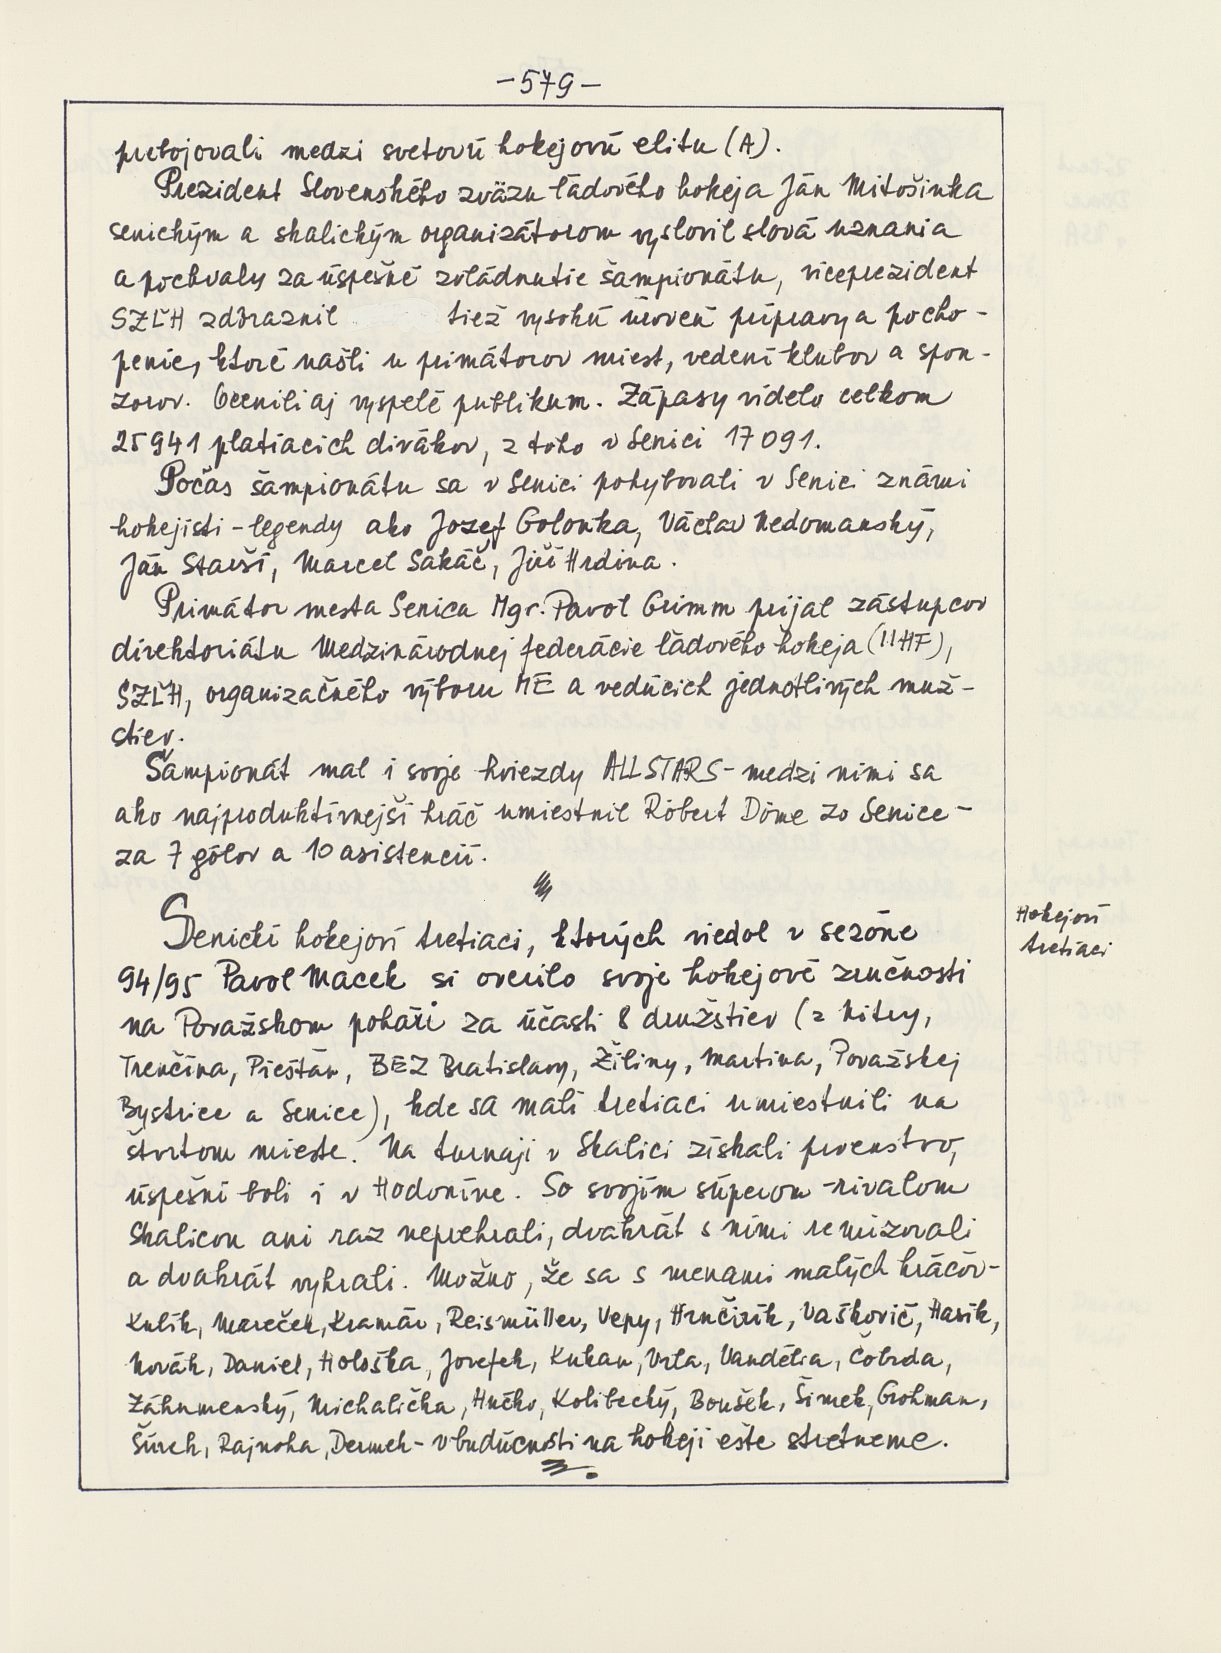 -579-
prebojovali medzi svetovú hokejovú elitu (A).
Prezident Slovenského zväzu ľadového hokeja Ján Mitošinka
senickým a skalickým organizátorom vyslovil slová uznania
a pochvaly za úspešné zvládnutie šampionátu, viceprezident
SZĽH zdôraznil tiež vysokú úroveň prípravy a pocho-
penie, ktoré našli u primátorov miest, vedení klubov a spon-
zorov. Ocenili aj vyspelé publikum. Zápasy videlo celkom
25941 platiacich divákov, z toho v Senici 17091.
Počas šampionátu sa v Senici pohybovali v Senici známi
hokejisti - legendy ako Jozef Golonka, Václav Nedomanský,
Ján Starší, Marcel Sakáč, Jiří Hrdina.
Primátor mesta Senica Mgr. Pavol Grimm prijal zástupcov
direktoriátu Medzinárodnej federácie ľadového hokeja (IIHF),
SZĽH, organizačného výboru ME a vedúcich jednotlivých muž-
stiev.
Šampionát mal i svoje hviezdy ALLSTARS - medzi nimi sa
ako najproduktívnejší hráč umiestnil Róbert Döme zo Senice -
za 7 gólov a 10 asistencií.
Senickí hokejoví tretiaci, ktorých viedol v sezóne
94/95 Pavol Macek si overilo svoje hokejové zručnosti
na Považskom pohári za účasti 8 družstiev (z Nitry,
Trenčína, Piešťan, BEZ Bratislavy, Žiliny, Martina, Považskej
Bystrice a Senice), kde sa malí tretiaci umiestnili na
štvrtom mieste. Na turnaji v Skalici získali prvenstvo,
úspešní boli i v Hodoníne. So svojím súperom - rivalom
Skalicou ani raz neprehrali, dvakrát s nimi remizovali
a dvakrát vyhrali. Možno, že sa s menami malých hráčov -
Kulík, Mareček, Kramár, Reismüller, Vepy, Hrnčirík, Vaškovič, Hasík,
Novák, Daniel, Hološka, Josefek, Kuban, Vrla, Vandélia, Čobrda,
Záhumenský, Michalička, Hučko, Kolibecký, Boušek, Šimek, Grohman,
Šúrek, Rajnoha, Dermek - v budúcnosti na hokeji ešte stretneme.
Hokejoví
tretiaci